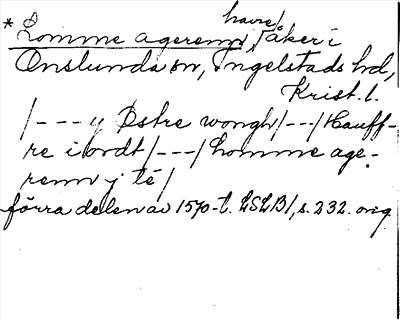 havre/
*Lomme agerenn, åker i
Onslunda sn, Ingelstads hd,
Krist. l.
/---y Østre wongh/---/Hauff-
re i ordt/---/Lomme age-
renn j té/
förra delen av 1570-t. LSLB1, s. 232. orig.